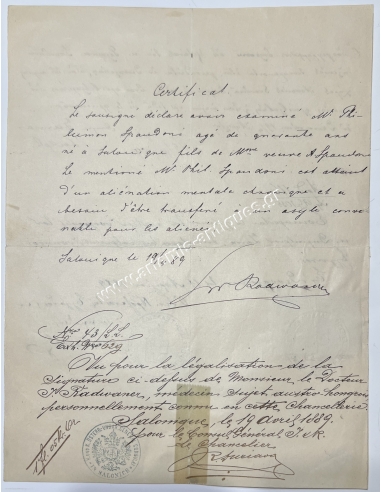 Certificat
Le soussigné déclare avoir examiné Mr. Phi-
lémon Spandoni agé de quarante ans
né à Salonique fils de Mme veuve A Spandoni
Le mentionné Mr. Phil. Spandoni est atteint
d'un aliénation mentale chronique et a
besoin d'être transféré un asyle conve-
nable pour les aliénés.
Salonique le 19/ 89
Radwaner
Vu pour la légalisation de la
signature ci-dessus de Monsieur le Docteur
Radwaner, médecin sujet austro-hongrois
personnellement connu en cette Chancellerie.
Salonique, le 19 Avril 1889.
Pour le Consul Général I. & R.
Le Chancelier